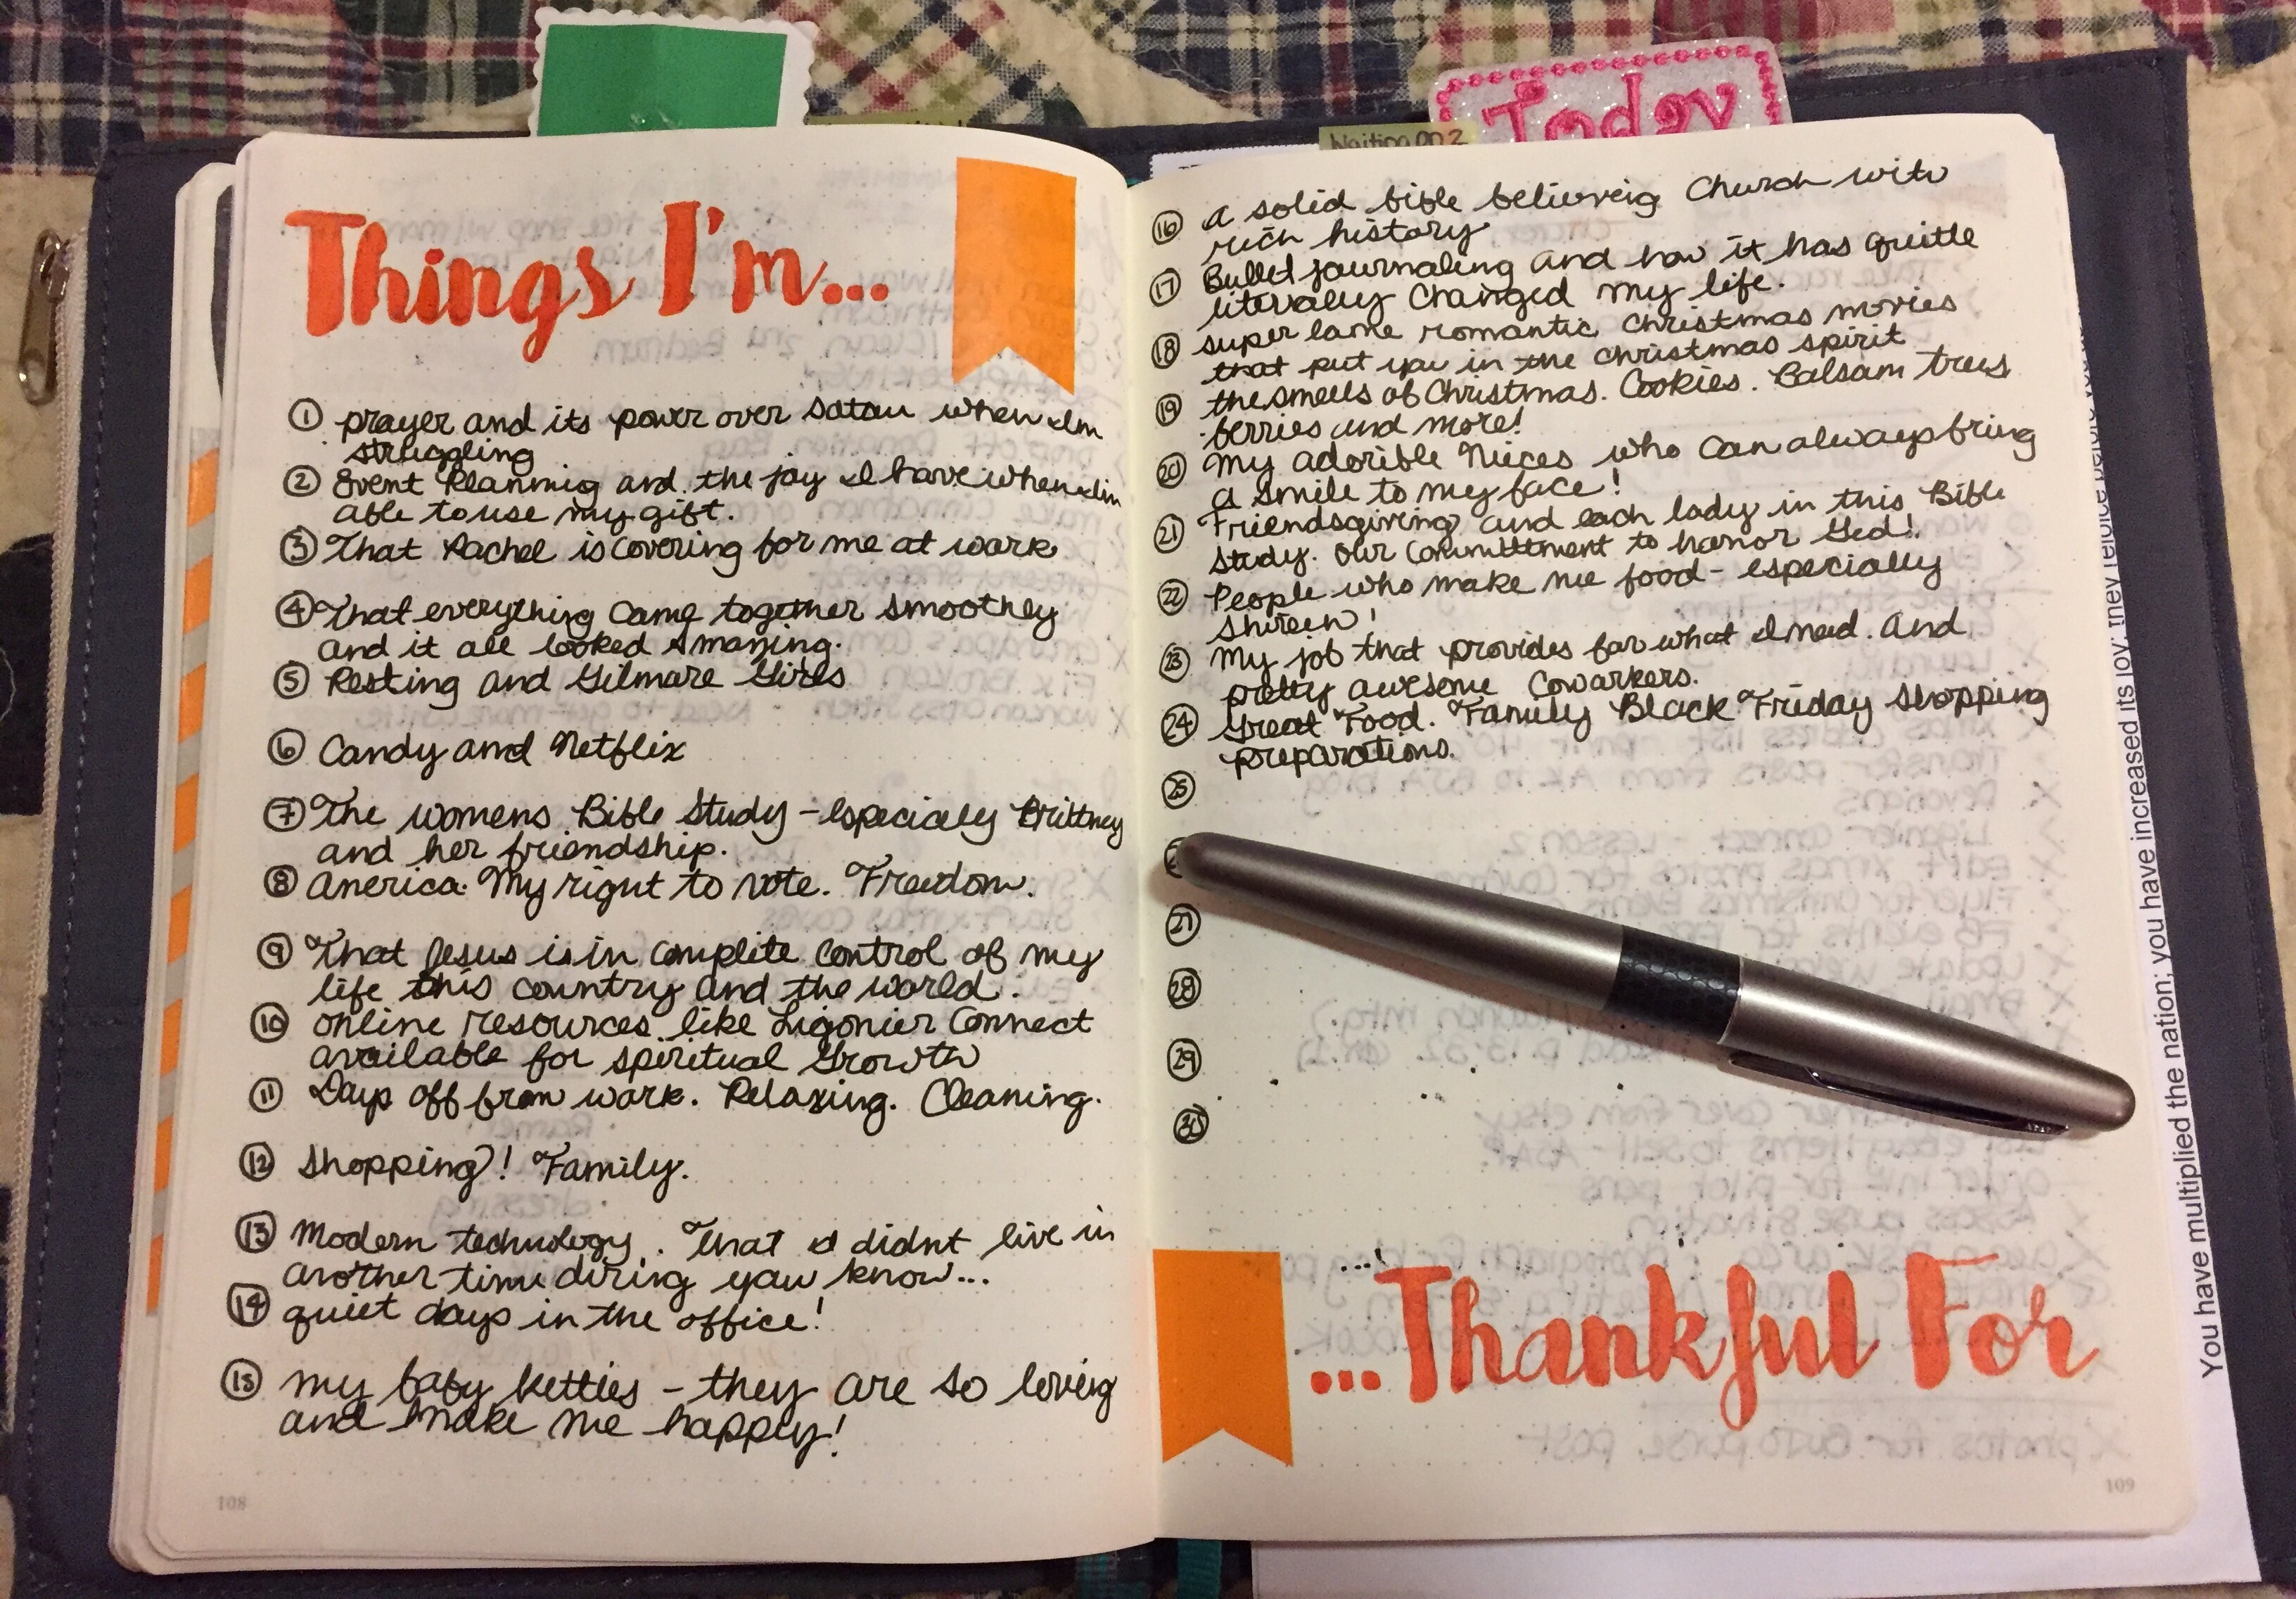 Today
Waiting on 2
Things I'm...
① prayer and its power over Satan when I'm
struggling
② Event Planning and the joy I have when I'm
able to use my gift.
③ That Rachel is covering for me at work
④ That everything came together smoothey
and it all looked Amazing.
⑤ Resting and Gilmore Girls
⑥ Candy and Netflix
⑦ The womens Bible Study - especially Brittney
and her friendship.
⑧ America. My right to vote. Freedom.
⑨ That Jesus is in complete control of my
life this country and the world.
⑩ online resources like Ligonier Connect
available for spiritual Growth
⑪ Days off from work. Relaxing. Cleaning.
⑫ Shopping! Family.
⑬ Modern technology. That I didnt live in
another time diring yaw know...
⑭ quiet days in the office!
⑮ my baby kitties - they are so loving
and make me happy!
108
⑯ a solid bible believeig Church with
rich history
⑰ Bullet journaling and how it has quitle
literally Changed my life.
⑱ super lame romantic Christmas movies
that put you in the Christmas spirit
⑲ the smells of Christmas. Cookies. Balsam trees
berries and more!
⑳ My adorible Nieces who can always bring
a smile to my face!
㉑ Friendsgiving and each lady in this Bible
Study. Our Committment to honor God!
㉒ People who make me food - especially
Shireen!
㉓ My job that provides for what I need. And
pretty awesome Coworkers.
㉔ Great Food. Family Black Friday Shopping
preparations.
㉕
㉗
㉘
㉙
㉚
...Thankful For
109
You have multiplied the nation; you have increased its joy; they rejoice before